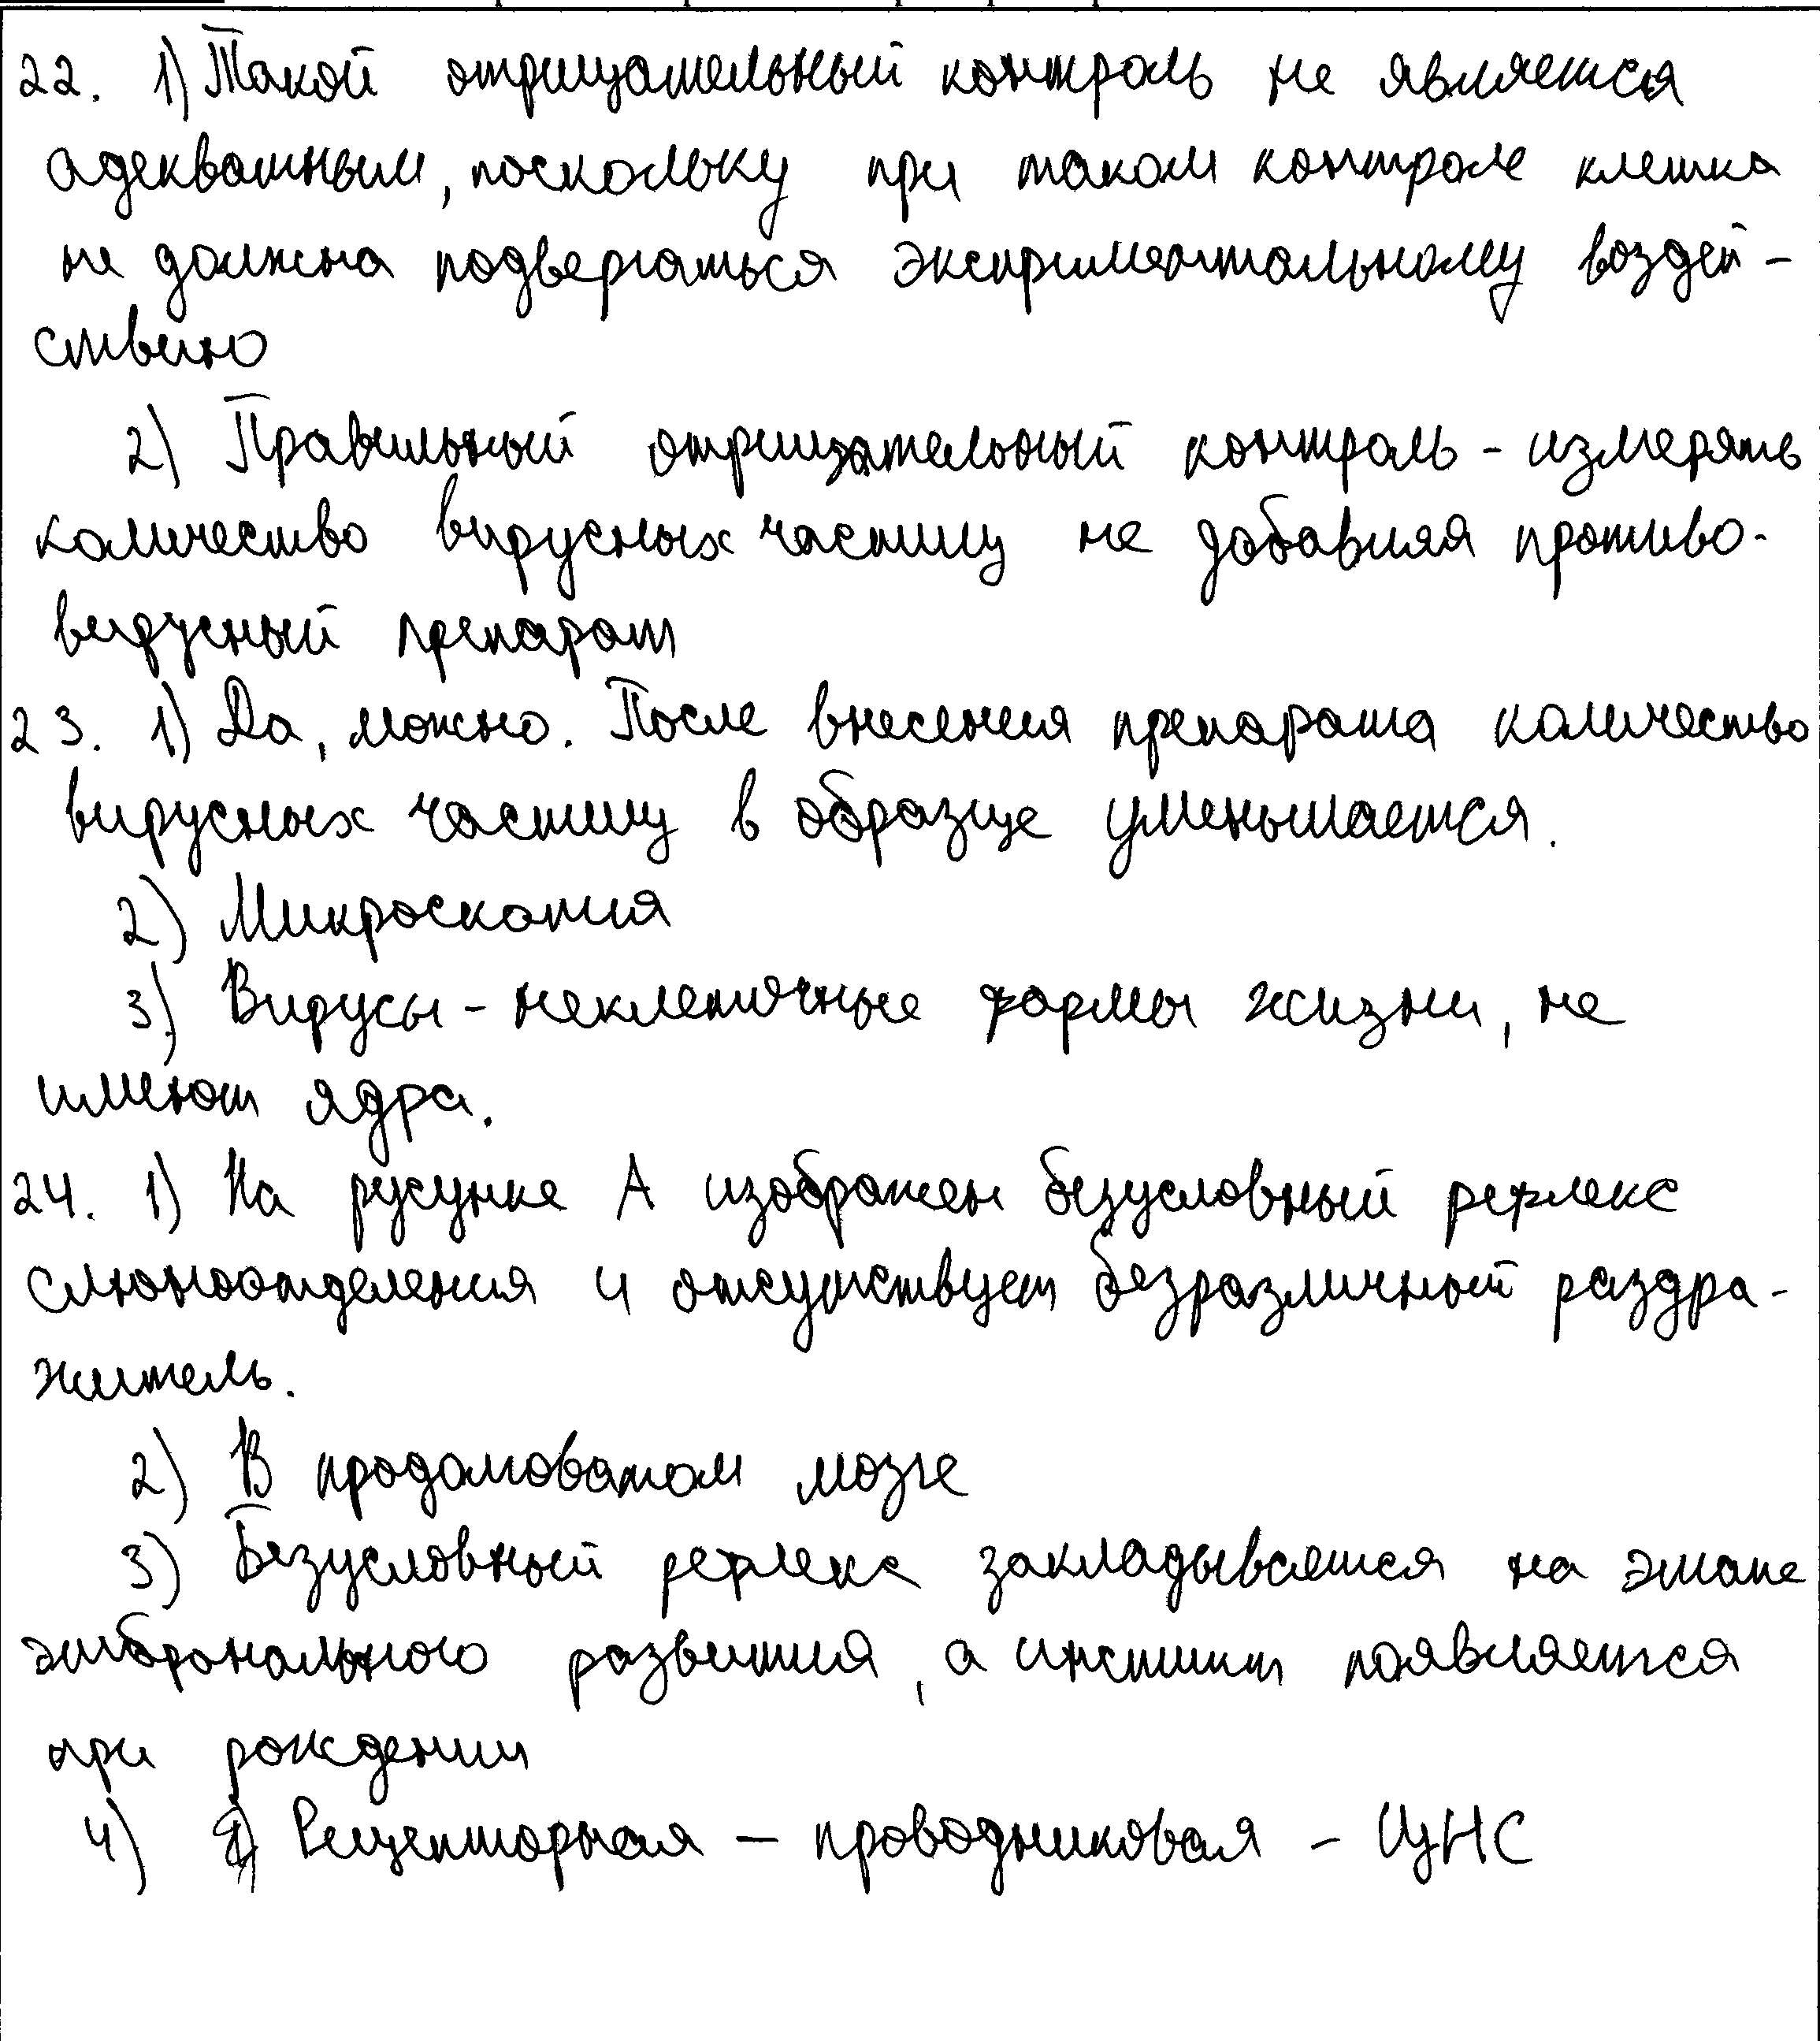 22. 1) Такой отрицательный контроль не является
адекватным, поскольку при таком контроле клетка
не должна подвергаться экспериментальному воздей-
ствию
2) Правильный отрицательный контроль - измерять
количество вирусных частиц не добавляя противо-
вирусный препарат
23. 1) Да, можно. После внесения препарата количество
вирусных частиц в образце уменьшается.
2) Микроскопия
3) Вирусы - неклеточные формы жизни, не
имеют ядра.
24. 1) На русунке А изображен безусловный рефлекс
слюноотделения и отсутствует безразличный раздра-
житель.
2) В продолговатом мозге
3) Безусловный рефлекс закладывается на этапе
эмбрионального развития, а инстинкт появляется
при рождении
4) Рецепторная — проводниковая - ЦНС